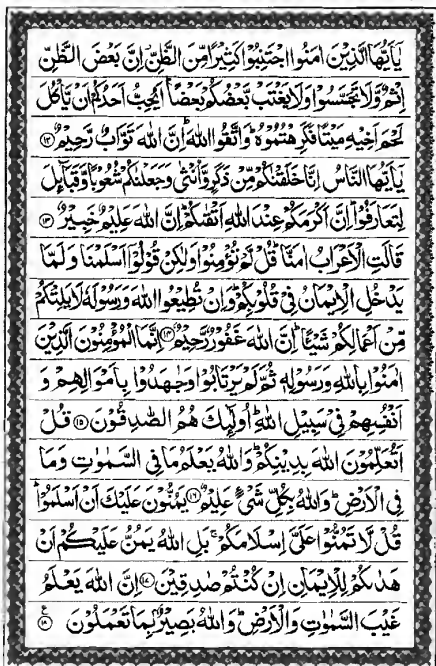 يٰۤاَيُّهَا الَّذِيْنَ اٰمَنُوا اجْتَنِبُوْا كَثِيْرًا مِّنَ الظَّنِّ اِنَّ بَعْضَ الظَّنِّ
اِثْمٌ وَّلَا تَجَسَّسُوْا وَلَا يَغْتَبْ بَّعْضُكُمْ بَعْضًا ؕ اَيُحِبُّ اَحَدُكُمْ اَنْ يَّاْكُلَ
لَحْمَ اَخِيْهِ مَيْتًا فَكَرِهْتُمُوْهُ ؕ وَاتَّقُوا اللّٰهَ ؕ اِنَّ اللّٰهَ تَوَّابٌ رَّحِيْمٌ ﴿۱۲﴾
يٰۤاَيُّهَا النَّاسُ اِنَّا خَلَقْنٰكُمْ مِّنْ ذَكَرٍ وَّاُنْثٰى وَجَعَلْنٰكُمْ شُعُوْبًا وَّقَبَآىِٕلَ
لِتَعَارَفُوْا ؕ اِنَّ اَكْرَمَكُمْ عِنْدَ اللّٰهِ اَتْقٰىكُمْ ؕ اِنَّ اللّٰهَ عَلِيْمٌ خَبِيْرٌ ﴿۱۳﴾
قَالَتِ الْاَعْرَابُ اٰمَنَّا ؕ قُلْ لَّمْ تُؤْمِنُوْا وَلٰكِنْ قُوْلُوْۤا اَسْلَمْنَا وَلَمَّا
يَدْخُلِ الْاِيْمَانُ فِيْ قُلُوْبِكُمْ ؕ وَاِنْ تُطِيْعُوا اللّٰهَ وَرَسُوْلَهٗ لَا يَلِتْكُمْ
مِّنْ اَعْمَالِكُمْ شَيْـًٔا ؕ اِنَّ اللّٰهَ غَفُوْرٌ رَّحِيْمٌ ﴿۱۴﴾ اِنَّمَا الْمُؤْمِنُوْنَ الَّذِيْنَ
اٰمَنُوْا بِاللّٰهِ وَرَسُوْلِهٖ ثُمَّ لَمْ يَرْتَابُوْا وَجٰهَدُوْا بِاَمْوَالِهِمْ وَ
اَنْفُسِهِمْ فِيْ سَبِيْلِ اللّٰهِ ؕ اُولٰٓىِٕكَ هُمُ الصّٰدِقُوْنَ ﴿۱۵﴾ قُلْ
اَتُعَلِّمُوْنَ اللّٰهَ بِدِيْنِكُمْ ؕ وَاللّٰهُ يَعْلَمُ مَا فِي السَّمٰوٰتِ وَمَا
فِي الْاَرْضِ ؕ وَاللّٰهُ بِكُلِّ شَيْءٍ عَلِيْمٌ ﴿۱۶﴾ يَمُنُّوْنَ عَلَيْكَ اَنْ اَسْلَمُوْا ؕ
قُلْ لَّا تَمُنُّوْا عَلَيَّ اِسْلَامَكُمْ ۚ بَلِ اللّٰهُ يَمُنُّ عَلَيْكُمْ اَنْ
هَدٰىكُمْ لِلْاِيْمَانِ اِنْ كُنْتُمْ صٰدِقِيْنَ ﴿۱۷﴾ اِنَّ اللّٰهَ يَعْلَمُ
غَيْبَ السَّمٰوٰتِ وَالْاَرْضِ ؕ وَاللّٰهُ بَصِيْرٌۢ بِمَا تَعْمَلُوْنَ ﴿۱۸﴾ ع